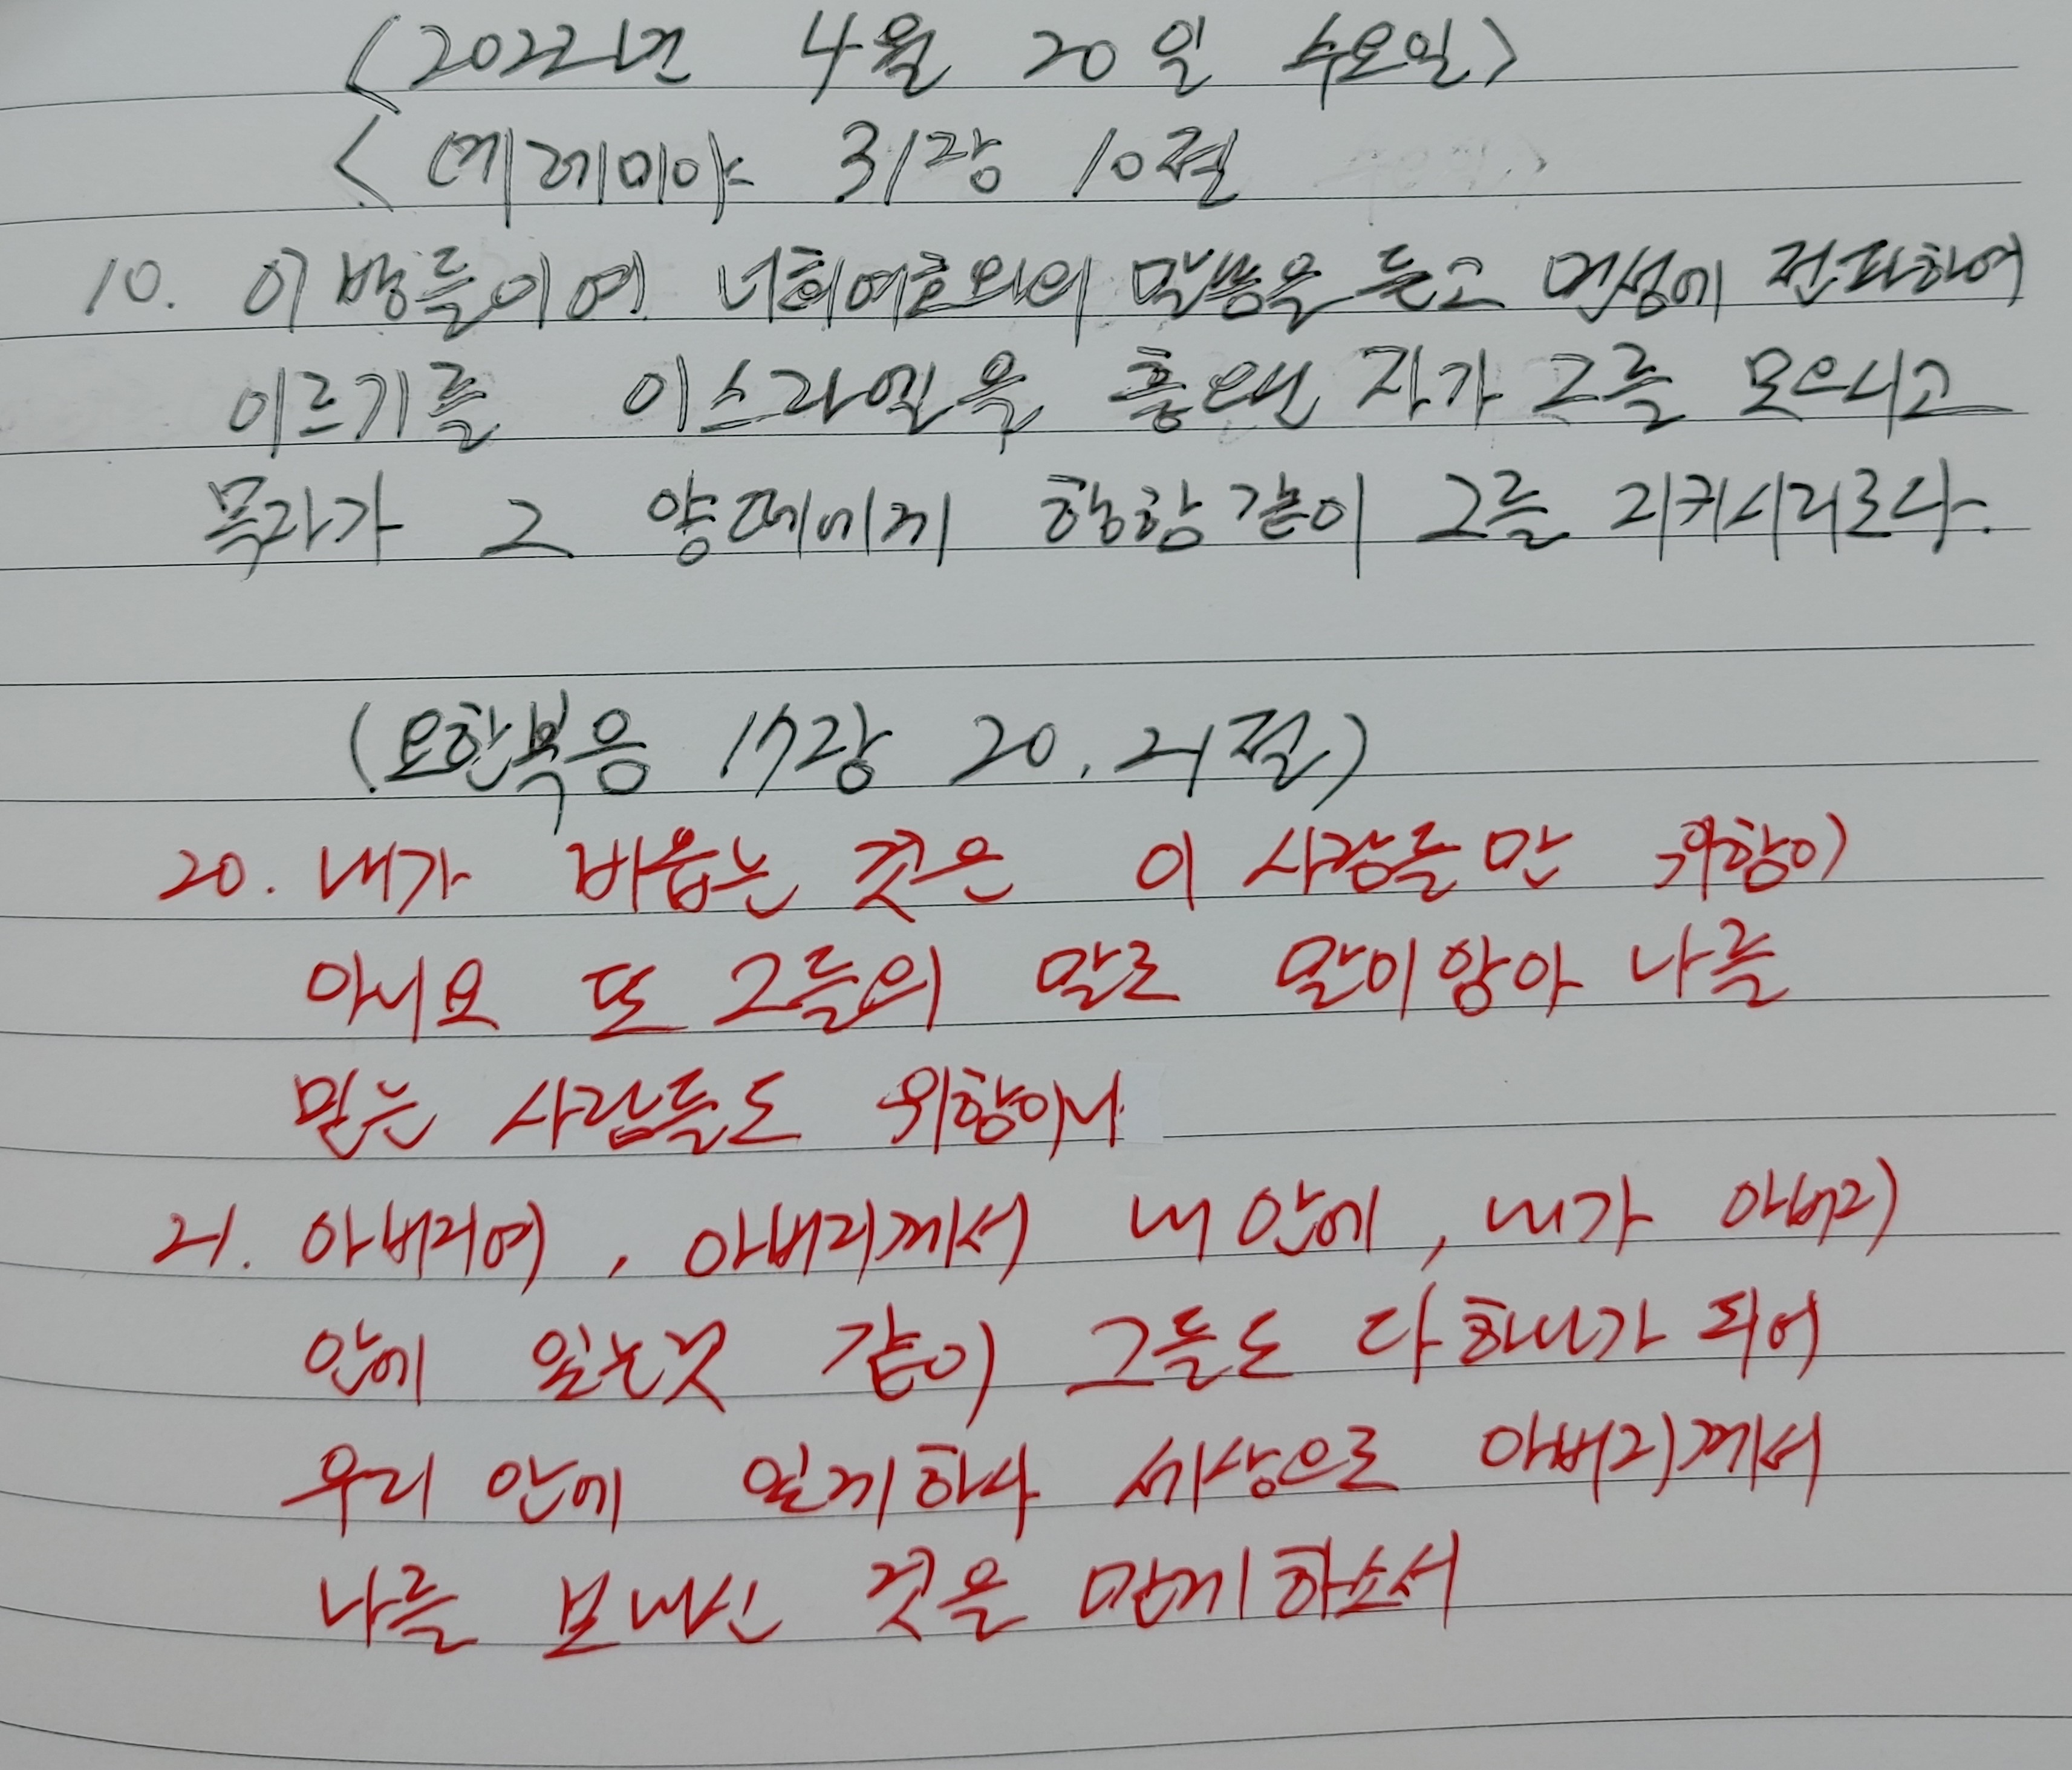 <2022년 4월 20일 수요일>
<예레미야 31장 10절
10. 이방들이여 너희여호와의 말씀을 듣고 먼섬에 전파하여
이르기를 이스라엘을 흩으신 자가 그를 모으시고
목자가 그 양떼에게 행함같이 그를 지키시리로다.
(요한복음 17장 20. 21절)
20. 내가 비옵는 것은 이 사람들만 위함이
아니요 또 그들의 말로 말미암아 나를
믿는 사람들도 위함이니
21. 아버지여, 아버지께서 내 안에, 내가 아버지
안에 있는것 같이 그들도 다 하나가 되어
우리 안에 있게하사 세상으로 아버지께서
나를 보내신 것을 믿게하소서